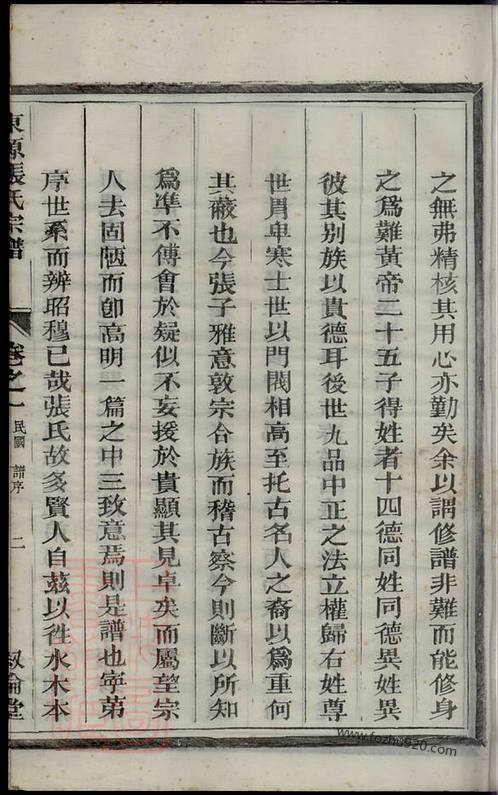 之無弗精核其用心亦勤矣余以謂修譜非難而能修身
之爲難黃帝二十五子得姓者十四德同姓同德異姓異
彼其別族以貴德耳後世九品中正之法立權歸右姓尊
世胄卑寒士世以門閥相高至托古名人之裔以爲重何
其蔽也今張子雅意敦宗合族而稽古察今則斷以所知
爲準不傅會於疑似不妄援於貴顯其見卓矣而屬望宗
人去固陋而卽高明一篇之中三致意焉則是譜也寧第
序世系而辨昭穆已哉張氏故多賢人自茲以徃水木本
東源張氏宗譜
卷之一
民國
譜序
二
敘倫堂
www.fozhu920.com